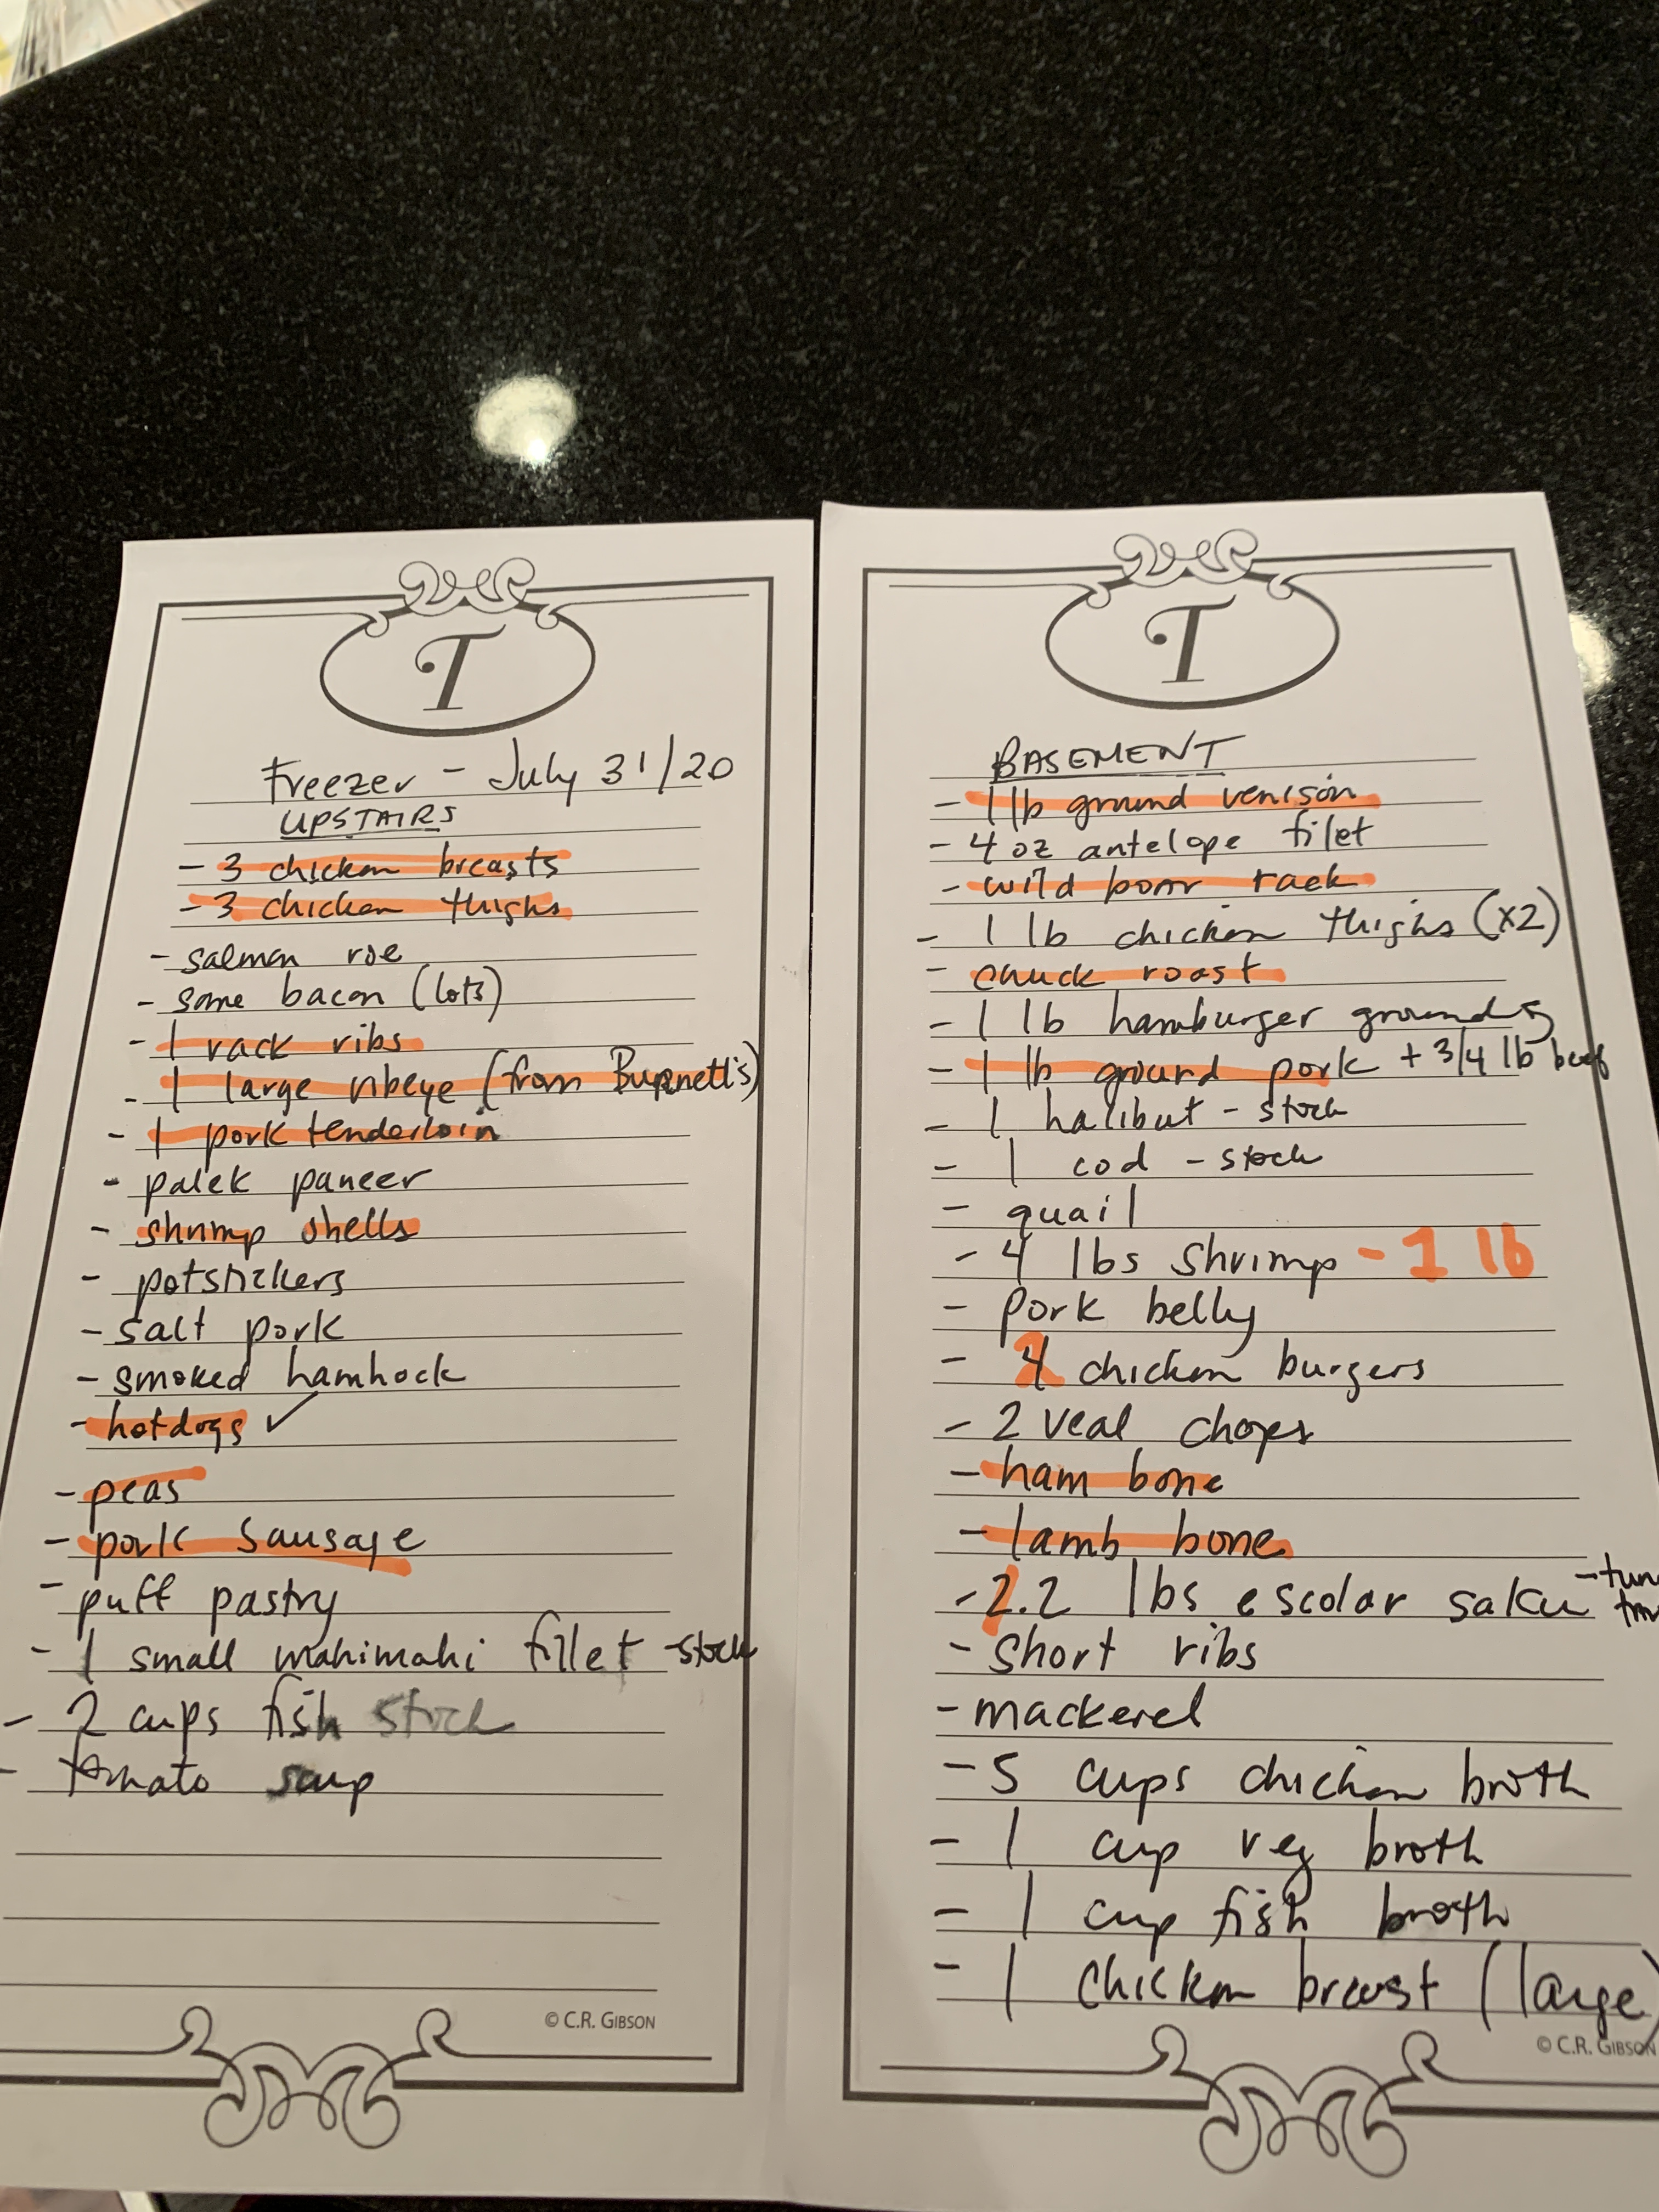 T
Freezer - July 31/20
UPSTAIRS
- 3 chicken breasts
- 3 chicken thighs
- salmon roe
- some bacon (lots)
- 1 rack ribs
- 1 large ribeye (from Burnett's)
- 1 pork tenderloin
- palek paneer
- shrimp shells
- potstickers
- salt pork
- smoked hamhock
- hotdogs ✓
- peas
- pork sausage
- puff pastry
- 1 small mahimahi fillet - stock
- 2 cups fish stock
- tomato soup
© C.R. GIBSON
T
BASEMENT
- 1 lb ground venison
- 4 oz antelope filet
- wild boar rack
- 1 lb chicken thighs (x2)
- chuck roast
- 1 lb hamburger ground
- 1 lb ground pork + 3/4 lb beef
- 1 halibut - stock
- 1 cod - stock
- quail
- 4 lbs shrimp - 1 lb
- pork belly
- chicken burgers
- 2 veal chops
- ham bone
- lamb bone
- 2.2 lbs escolar saku
- short ribs
- mackerel
- 5 cups chicken broth
- 1 cup veg broth
- 1 cup fish broth
- 1 chicken breast (large)
© C.R. GIBSON